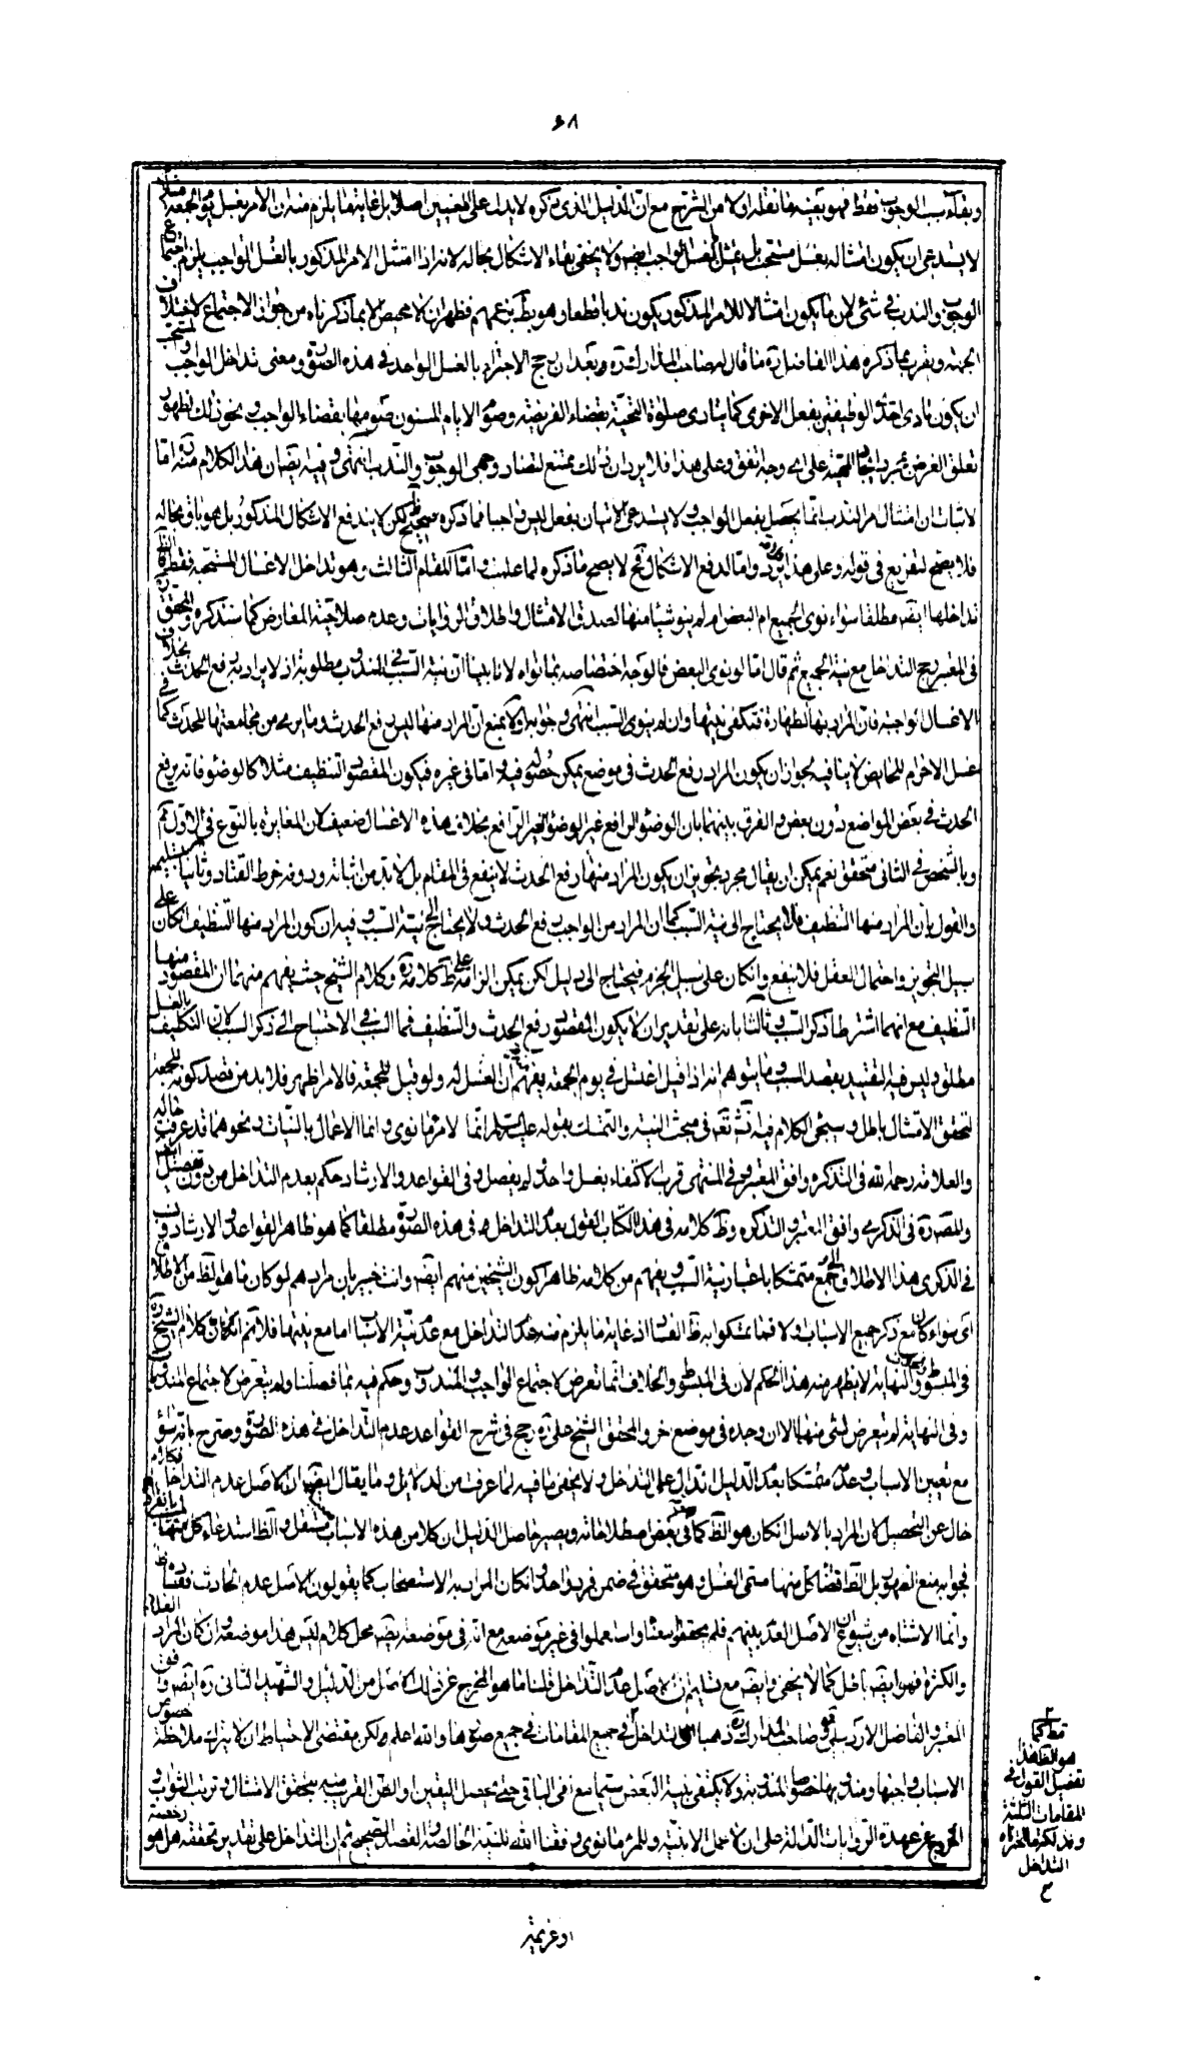 ٦٨
وبقاء سبب الوجوب فقط فهو بعينه ما نقله اولا من الشرح مع ان الدليل الذى ذكره لا يدل على المعنيين اصلا بل غايتها يلزم منه ان الامر بغسل يوم الجمعة مثلا
لا يستدعى ان يكون امتثاله بغسل مستحب بل يمتثل بالغسل الواجب ايضه ولا يخفى بقاء الاشكال بحاله لانه اذا امتثل الامر المذكور بالغسل الواجب يلزم اجتماع
الوجوب والندب فى شئ لان ما يكون امتثالا للامر المذكور يكون ندبا قطعا وهو بط بزعمهم فظهر ان لا محيص الا بما ذكرناه من جواز الاجتماع لاختلاف
الجهة ويقرب مما ذكره هذا الفاضل ره ما قال صاحب المدارك ره وبعد ان رجح الاجتزاء بالغسل الواحد فى هذه الصورة ومعنى تداخل الواجب والمستحب
ان يكون تادى احدى الوظيفتين بفعل الاخرى كما يتادى صلوة التحية بقضاء الفريضة وصوم الايام المسنون صومها بقضاء الواجب ونحو ذلك لظهور
تعلق الغرض بمجرد ايجاد المهية على اى وجه اتفق وعلى هذا فلا يرد ان ذلك ممتنع لتضاد وجهى الوجوب والندب انتهى وفيه ايضا ان هذا الكلام منه ره اما
لاثبات ان امتثال امر الندب انما يحصل بفعل الواجب ولا يستدعى الاتيان بفعل ليس واجبا فما ذكره صحيح لكن لا يندفع الاشكال المذكور بل هو باق بحاله
فلا يصح التفريع فى قوله وعلى هذا فلا يرد واما لدفع الاشكال فح لا يصح ما ذكره لما علمت واما المقام الثالث وهو تداخل الاغسال المستحبة فقط فالظ
تداخلها ايضه مطلقا سواء نوى الجميع ام البعض ام لم ينو شيئا منها لصدق الامتثال واطلاق الروايات وعدم صلاحية المعارض كما سنذكره والمحقق ره
فى المعتبر رجح التداخل مع نية الجميع ثم قال اما لو نوى البعض فالوجه اختصاصه بما نواه لانا بينا ان نية السبب فى المندوب مطلوبة اذ لا يراد به رفع الحدث بخلاف
الاغسال الواجبة فان المراد بها الطهارة فتكفى نيتها وان لم ينو السبب انتهى وجوابه اولا بمنع ان المراد منها ليس رفع الحدث وما يرى من مجامعتها للحدث كما فى
غسل الاحرام للحايض لا ينافيه لجواز ان يكون المراد رفع الحدث فى موضع يمكن حصوله فيه واما فى غيره فيكون المقصود التنظيف مثلا كالوضوء فانه يرفع
الحدث فى بعض المواضع دون بعض والفرق بينهما بان الوضوء الرافع غير الوضوء الغير الرافع بخلاف هذه الاغسال ضعيف لان المغايرة بالنوع فى الاول غير مسلم
وبالشخص فى الثانى متحقق نعم يمكن ان يقال مجرد تجويز ان يكون المراد منها رفع الحدث لا ينفع فى المقام بل لا بد من اثباته ودونه خرط القتاد وثانيا بتسليمه
والقول بان المراد منها التنظيف فلا يحتاج الى نية السبب كما ان المراد من الواجب رفع الحدث ولا يحتاج الى نية السبب وفيه ان كون المراد منها التنظيف ان كان على
سبيل التجويز واحتمال العقل فلا ينفع وان كان على سبيل الجزم فيحتاج الى دليل لكن يمكن الزامه على ظ كلامه ره وكلام الشيخ حيث يفهم منهما ان المقصود منها
التنظيف مع انهما اشترطا ذكر السبب وثالثا بانه على تقدير ان لا يكون المقصود رفع الحدث والتنظيف فما السبب فى الاحتياج الى ذكر السبب لان التكليف بالغسل
مطلق وليس فيه التقييد بقصد السبب وما يتوهم انه اذا قيل اغتسل فى يوم الجمعة يفهم ان الغسل له ولو قيل للجمعة فالامر اظهر فلا بد من قصد كونه للجمعة
لتحقق الامتثال باطل وسيجئ الكلام فيه انشاء الله تعه فى مبحث النية والتمسك بقوله عليه السلام انما لامرء ما نوى وانما الاعمال بالنيات ونحوهما قد عرفت حاله
والعلامة رحمه الله فى التذكرة وافق المعتبر وفى المنتهى قرب الاكتفاء بغسل واحد ولم يفصل وفى القواعد والارشاد حكم بعدم التداخل من دون تفصيل ايضه
وللمصه ره فى الذكرى وافق المعتبر والتذكرة وظ كلامه فى هذا الكتاب القول بعدم التداخل فى هذه الصورة مطلقا كما هو ظاهر القواعد والارشاد ونسب
فى الذكرى هذا الاطلاق الى جمع متمسكا باعتبار نية السبب ويفهم من كلامه ظاهرا كون الشيخين منهم ايضه وانت خبير بان مرادهم لو كان ما هو الظ من الاطلاق
اى سواء كان مع ذكر جميع الاسباب او لا فما تمسكوا به ظ الفساد اذ غاية ما يلزم منه عدم التداخل مع عدم نية الاسباب اما مع نيتها فلا ثم ان ما فى كلام الشيخ ره
فى المبسوط والنهاية لا يظهر منه هذا الحكم لان فى المبسوط والخلاف انما تعرض لاجتماع الواجب والمندوب وحكم فيه بما فصلنا ولم يتعرض لاجتماع المندوبات
وفى النهاية لم يتعرض لشئ منها الا ان وجده فى موضع اخر والمحقق الشيخ على ره رجح فى شرح القواعد عدم التداخل فى هذه الصورة وصرح بانه سواء
مع تعيين الاسباب وعدمه متمسكا بعدم الدليل الدال على التداخل ولا يخفى ما فيه لما عرفت من الدلايل وما يقال ايضه ان الاصل عدم التداخل فكلام
خال عن التحصيل لان المراد بالاصل ان كان هو الظ كما فى بعض اصطلاحاته ويصير حاصل الدليل ان كلا من هذه الاسباب سبب مستقل والظ استدعاء كل منها
فجوابه منع الظهور بل الظ اقتضاء كل منها مسمى الغسل وهو متحقق فى ضمن فرد واحد وان كان المراد به الاستصحاب كما يقولون الاصل عدم الحادث ففساده ظ
وانما الاشتباه من شيوع ان الاصل العدم بينهم فلم يحققوا معناه واستعملوا فى غير موضعه مع انه فى موضعه ايضه محل كلام ليس هذا موضعه وان كان المراد الغلبة
والكثرة فهو ايضه باطل كما لا يخفى وايضه مع تسليم ان الاصل عدم التداخل قلنا ما هو المخرج عن ذلك الاصل من الدليل والشهيد الثانى ره ايضه وافق
المعتبر والفاضل الاردبيلى وصاحب المدارك ره ذهبا الى التداخل فى جميع المقامات فى جميع صورها والله اعلم ولكن مقتضى الاحتياط ان لا يترك ملاحظة خصوص
الاسباب واجبها ومندوبها خصوصا المندوبة ولا يكتفى بنية البعض سيما مع نفى الباقى حتى يحصل اليقين او الظن القريب منه بتحقق الامتثال وترتب الثواب و
الخروج عن عهدة الروايات الدالة على ان لا عمل الا بنية وللمرء ما نوى وفقنا الله للنية الخالصة والقصد الصحيح ثم ان التداخل على تقدير تحققه هل هو رخصة
هو الظ هذا
تفصيل القول فى
المقامات الثلثة
التداخل
او عزيمة